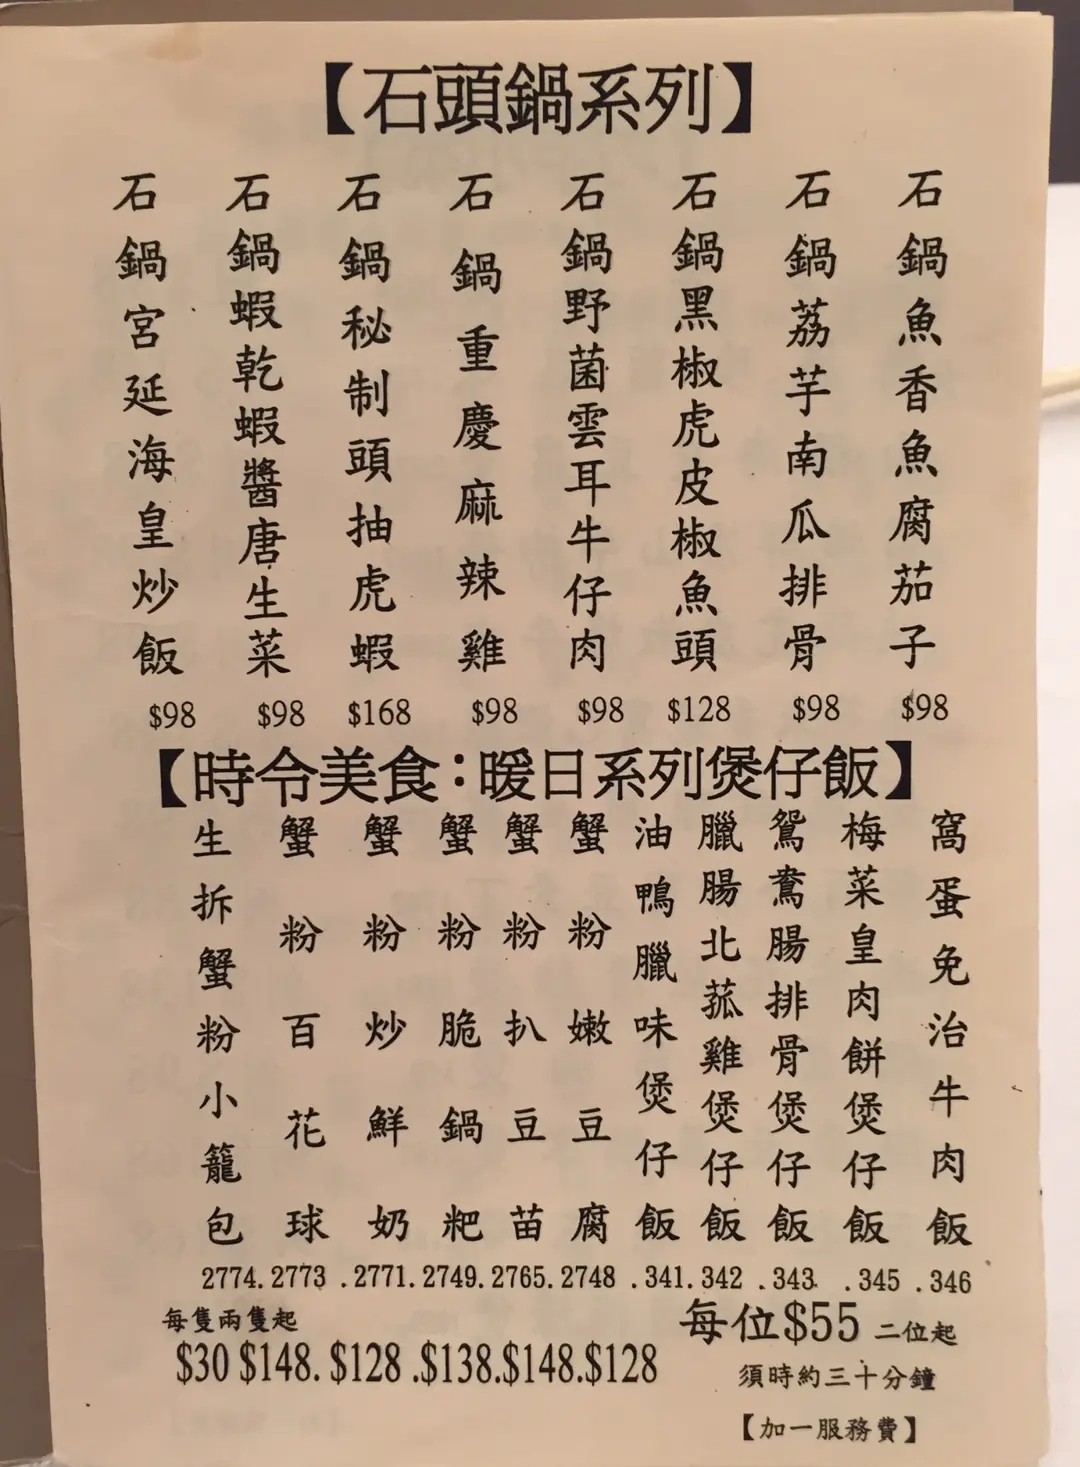 【石頭鍋系列】
石鍋魚香魚腐茄子
$98
石鍋荔芋南瓜排骨
$98
石鍋黑椒虎皮椒魚頭
$128
石鍋野菌雲耳牛仔肉
$98
石鍋重慶麻辣雞
$98
石鍋秘制頭抽虎蝦
$168
石鍋蝦乾蝦醬唐生菜
$98
石鍋宮延海皇炒飯
$98
【時令美食:暖日系列煲仔飯】
窩蛋免治牛肉飯
.346
梅菜皇肉餅煲仔飯
.345
鴛鴦腸排骨煲仔飯
.343
臘腸北菰雞煲仔飯
.342
油鴨臘味煲仔飯
.341
每位$55 二位起
須時約三十分鐘
蟹粉嫩豆腐
2748
$128
蟹粉扒豆苗
2765.
$148.
蟹粉脆鍋粑
2749.
$138.
蟹粉炒鮮奶
.2771.
$128 .
蟹粉百花球
2773
$148.
生拆蟹粉小籠包
2774.
每隻兩隻起
$30
【加一服務費】